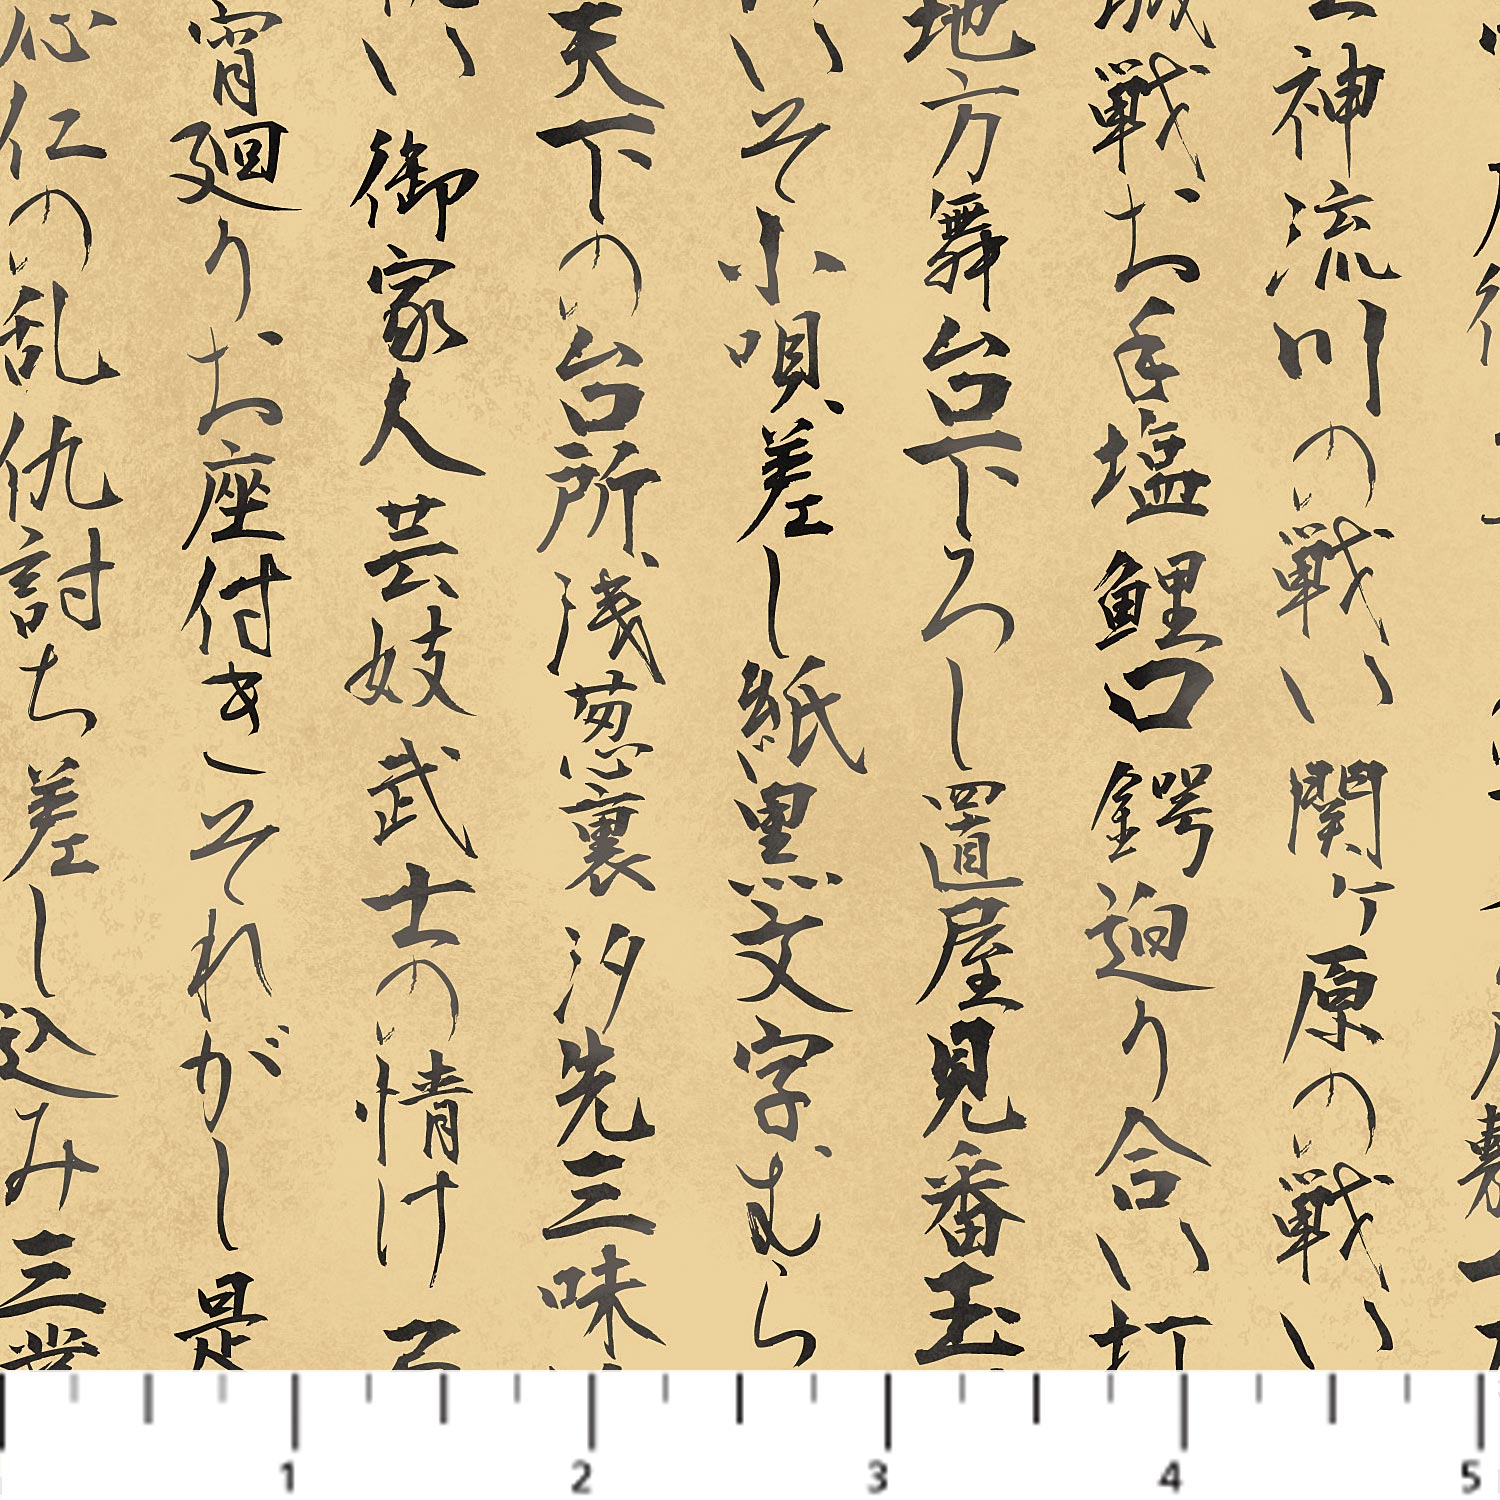 神流川の戦い 関ケ原の戦い
戦 お手塩 鯉口 鍔迫り合い 打
地方 舞台 下ろし 置屋 見番 玉
いそ 小唄 差し紙 黒文字 むら
天下の台所 浅葱裏 汐先 三味
い 御家人 芸妓 武士の情け
宵廻り お座付き それがし 是
応仁の乱 仇討ち 差し込み 三業
1 2 3 4 5